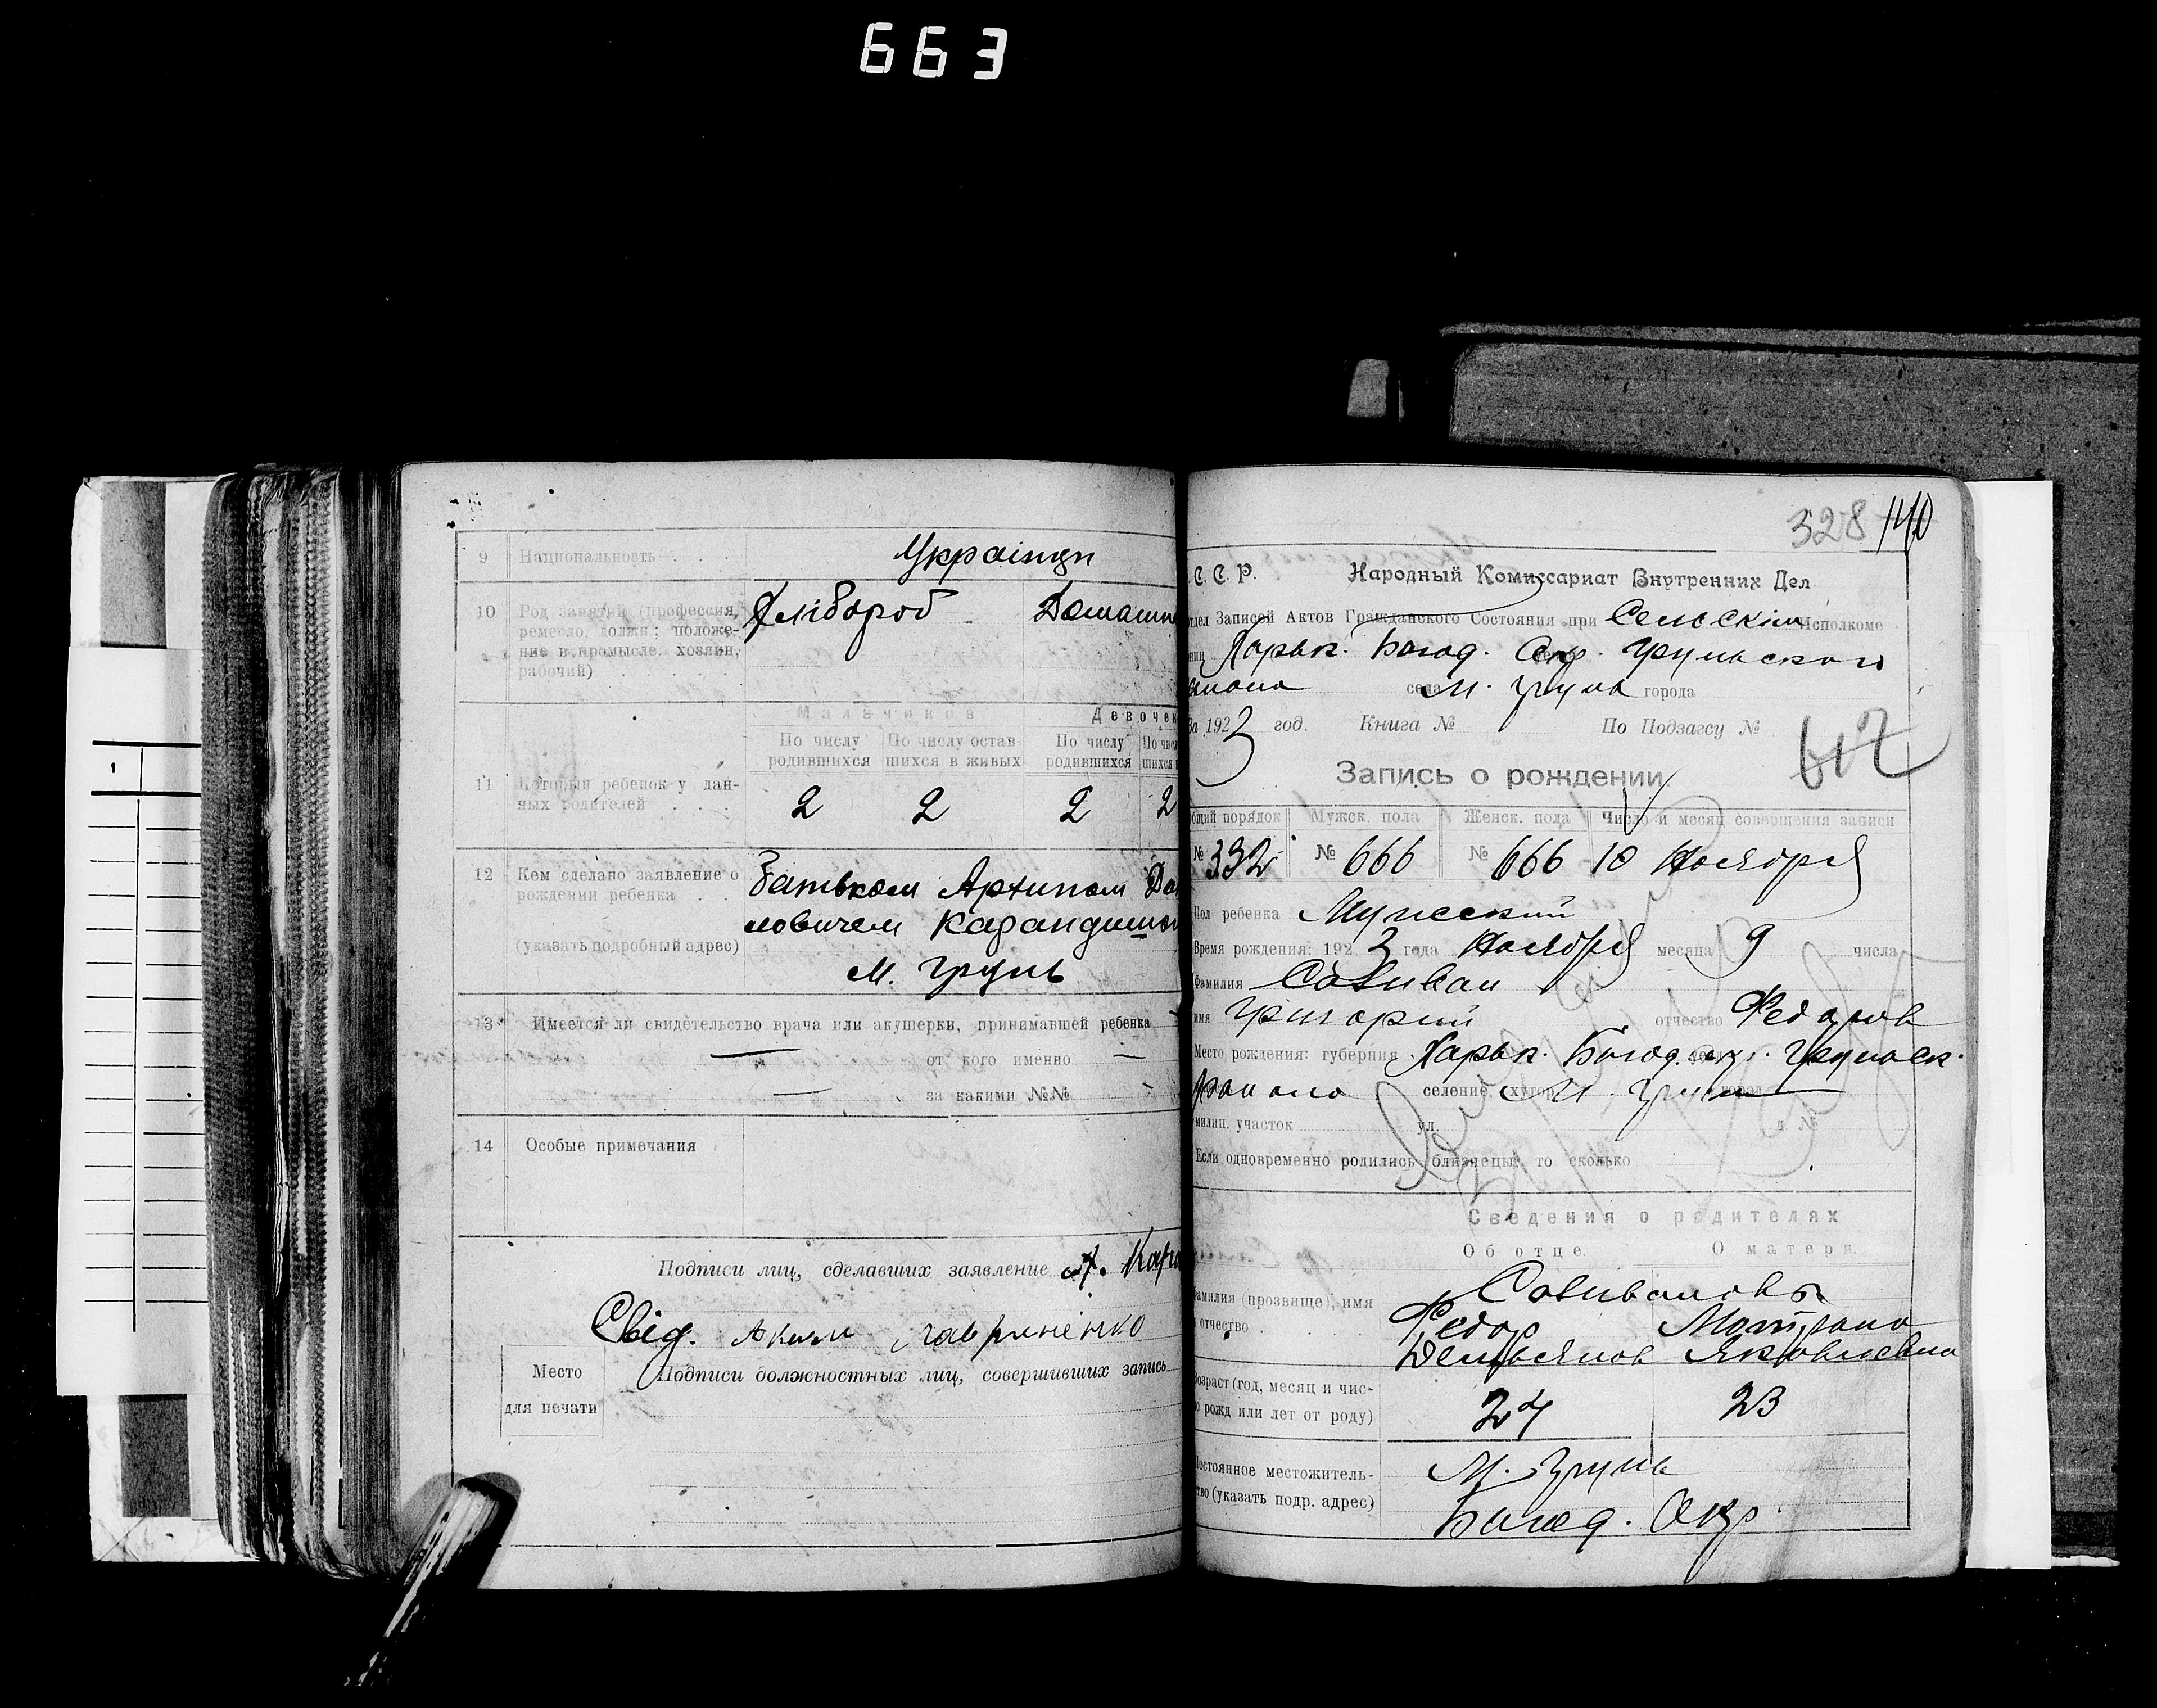 663
9 Национальность Українци
10 Род занятий (профессия, Хлібороб Домашн
ремесло, должн; положе-
ние в промысле. хозяин,
рабочий)
Мальчиков Девочек
По числу По числу остав- По числу По числ
родившихся шихся в живых родившихся шихся
11 Который ребенок у дан- 2 2 2 2
ных родителей
12 Кем сделано заявление о Батьком Архипом Да
рождении ребенка ловичем Карандишом
(указать подробный адрес)
М. Грунь
13 Имеется ли свидетельство врача или акушерки, принимавшей ребенка
от кого именно —
за какими №№
14 Особые примечания
Подписи лиц, сделавших заявление А. Кара
Свід. Аким Гавриненко
Место Подписи должностных лиц, совершивших запись
для печати
328 140
С. С. Р. Народный Комиссариат Внутренних Дел
тдел Записей Актов Гражданского Состояния при Сельскім Исполкоме
Харьк. Богод. Окр. Грунского
села М. Грунь города
За 1923 год. Книга № По Подзагсу №
612
Запись о рождении.
бщий порядок Мужск. пола Женск. пола Число и месяц совершения записи
№ 332 № 666 № 666 10 Ноября
Пол ребенка Мужеский
Время рождения: 1923 года Ноября месяца 9 числа
Фамилия Саливан
имя Григорий отчество Федоров
Место рождения: губерния Харьк. Богод. окр. Грунськ.
района селение, хутор М. Грунь город
милиц. участок ул. д. №
Если одновременно родились близнецы, то сколько
Сведения о родителях
Об отце. О матери.
Саливановы
амилия (прозвище), имя Федор Мотрона
отчество Демьянов Яковлевна
озраст (год, месяц и чис-
о рожд или лет от роду) 24 23
остоянное местожитель- М. Грунь
тво (указать подр. адрес) Богод. Окр.